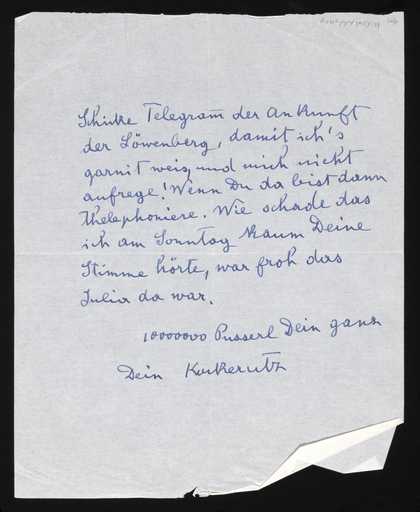 Schicke Telegram der Ankunft
der Löwenberg, damit ich's
garnit weis, und mich nicht
aufrege! Wenn Du da bist dann
thelephoniere. Wie schade das
ich am Sonntag kaum Deine
Stimme hörte, war froh das
Julia da war.
10000000 Pusserl Dein ganz
Dein Kukerutz